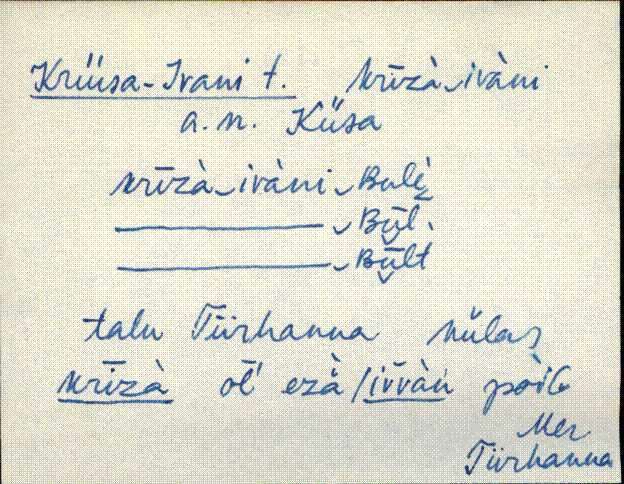 Krüüsa-Ivani t. krīzà‿ivàni
a.n. Küsa
krīzà‿ivàni‿Bulè
‿Būl.
‿Būlt
talu Tiirhanna külas
krīzà ol' ezà /ivvàn poig
Mer
Tiirhanna